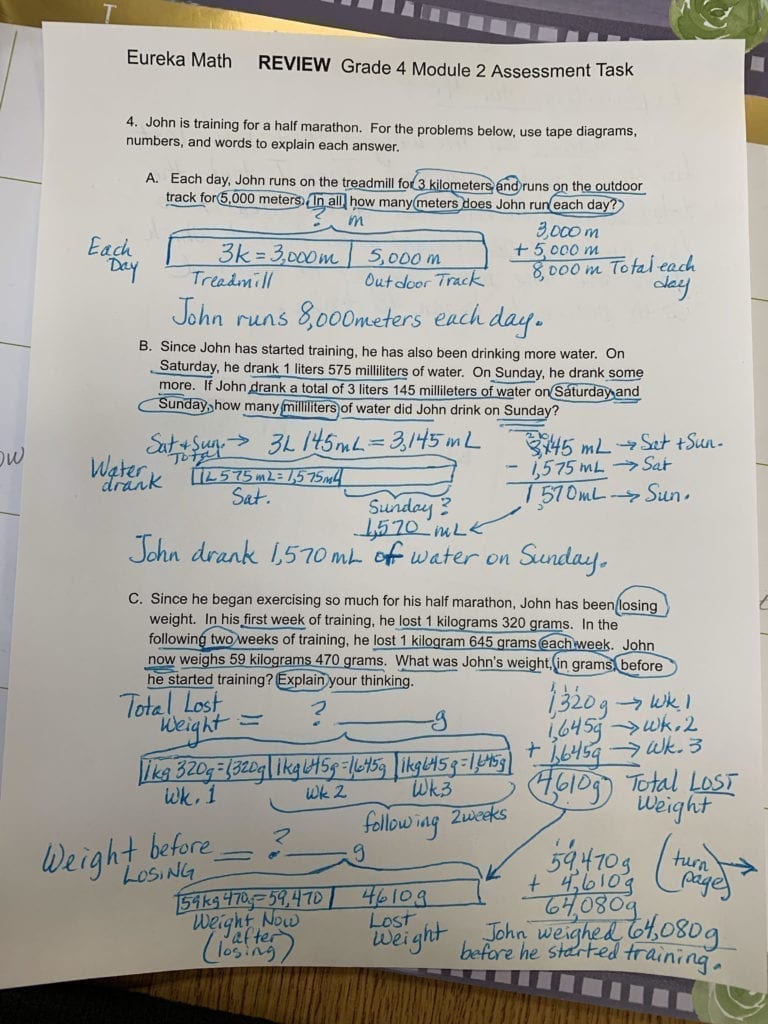 Eureka Math REVIEW Grade 4 Module 2 Assessment Task
4. John is training for a half marathon. For the problems below, use tape diagrams,
numbers, and words to explain each answer.
A. Each day, John runs on the treadmill for 3 kilometers and runs on the outdoor
track for 5,000 meters. In all, how many meters does John run each day?
? m
Each Day
3k = 3,000m | 5,000 m
Treadmill Outdoor Track
3,000 m
+ 5,000 m
8,000 m Total each day
John runs 8,000meters each day.
B. Since John has started training, he has also been drinking more water. On
Saturday, he drank 1 liters 575 milliliters of water. On Sunday, he drank some
more. If John drank a total of 3 liters 145 millileters of water on Saturday and
Sunday, how many milliliters of water did John drink on Sunday?
Sat + Sun. Total → 3L 145mL = 3,145 mL
Water drank
1L 575mL = 1,575mL
Sat.
Sunday?
1,570 mL
3,145 mL → Sat + Sun.
- 1,575 mL → Sat
1,570mL → Sun.
John drank 1,570 mL of water on Sunday.
C. Since he began exercising so much for his half marathon, John has been losing
weight. In his first week of training, he lost 1 kilograms 320 grams. In the
following two weeks of training, he lost 1 kilogram 645 grams each week. John
now weighs 59 kilograms 470 grams. What was John's weight, in grams, before
he started training? Explain your thinking.
Total Lost Weight = ? g
1kg 320g = 1,320g | 1kg 645g = 1,645g | 1kg 645g = 1,645g
Wk. 1 Wk 2 Wk3
following 2weeks
1,320g → Wk. 1
1,645g → Wk. 2
+ 1,645g → Wk. 3
4,610g Total LOST Weight
Weight before LOSING = ? g
59kg 470g = 59,470 | 4610g
Weight Now (after losing)
Lost Weight
59,470g
+ 4,610g
64,080g
(turn page) →
John weighed 64,080g
before he started training.